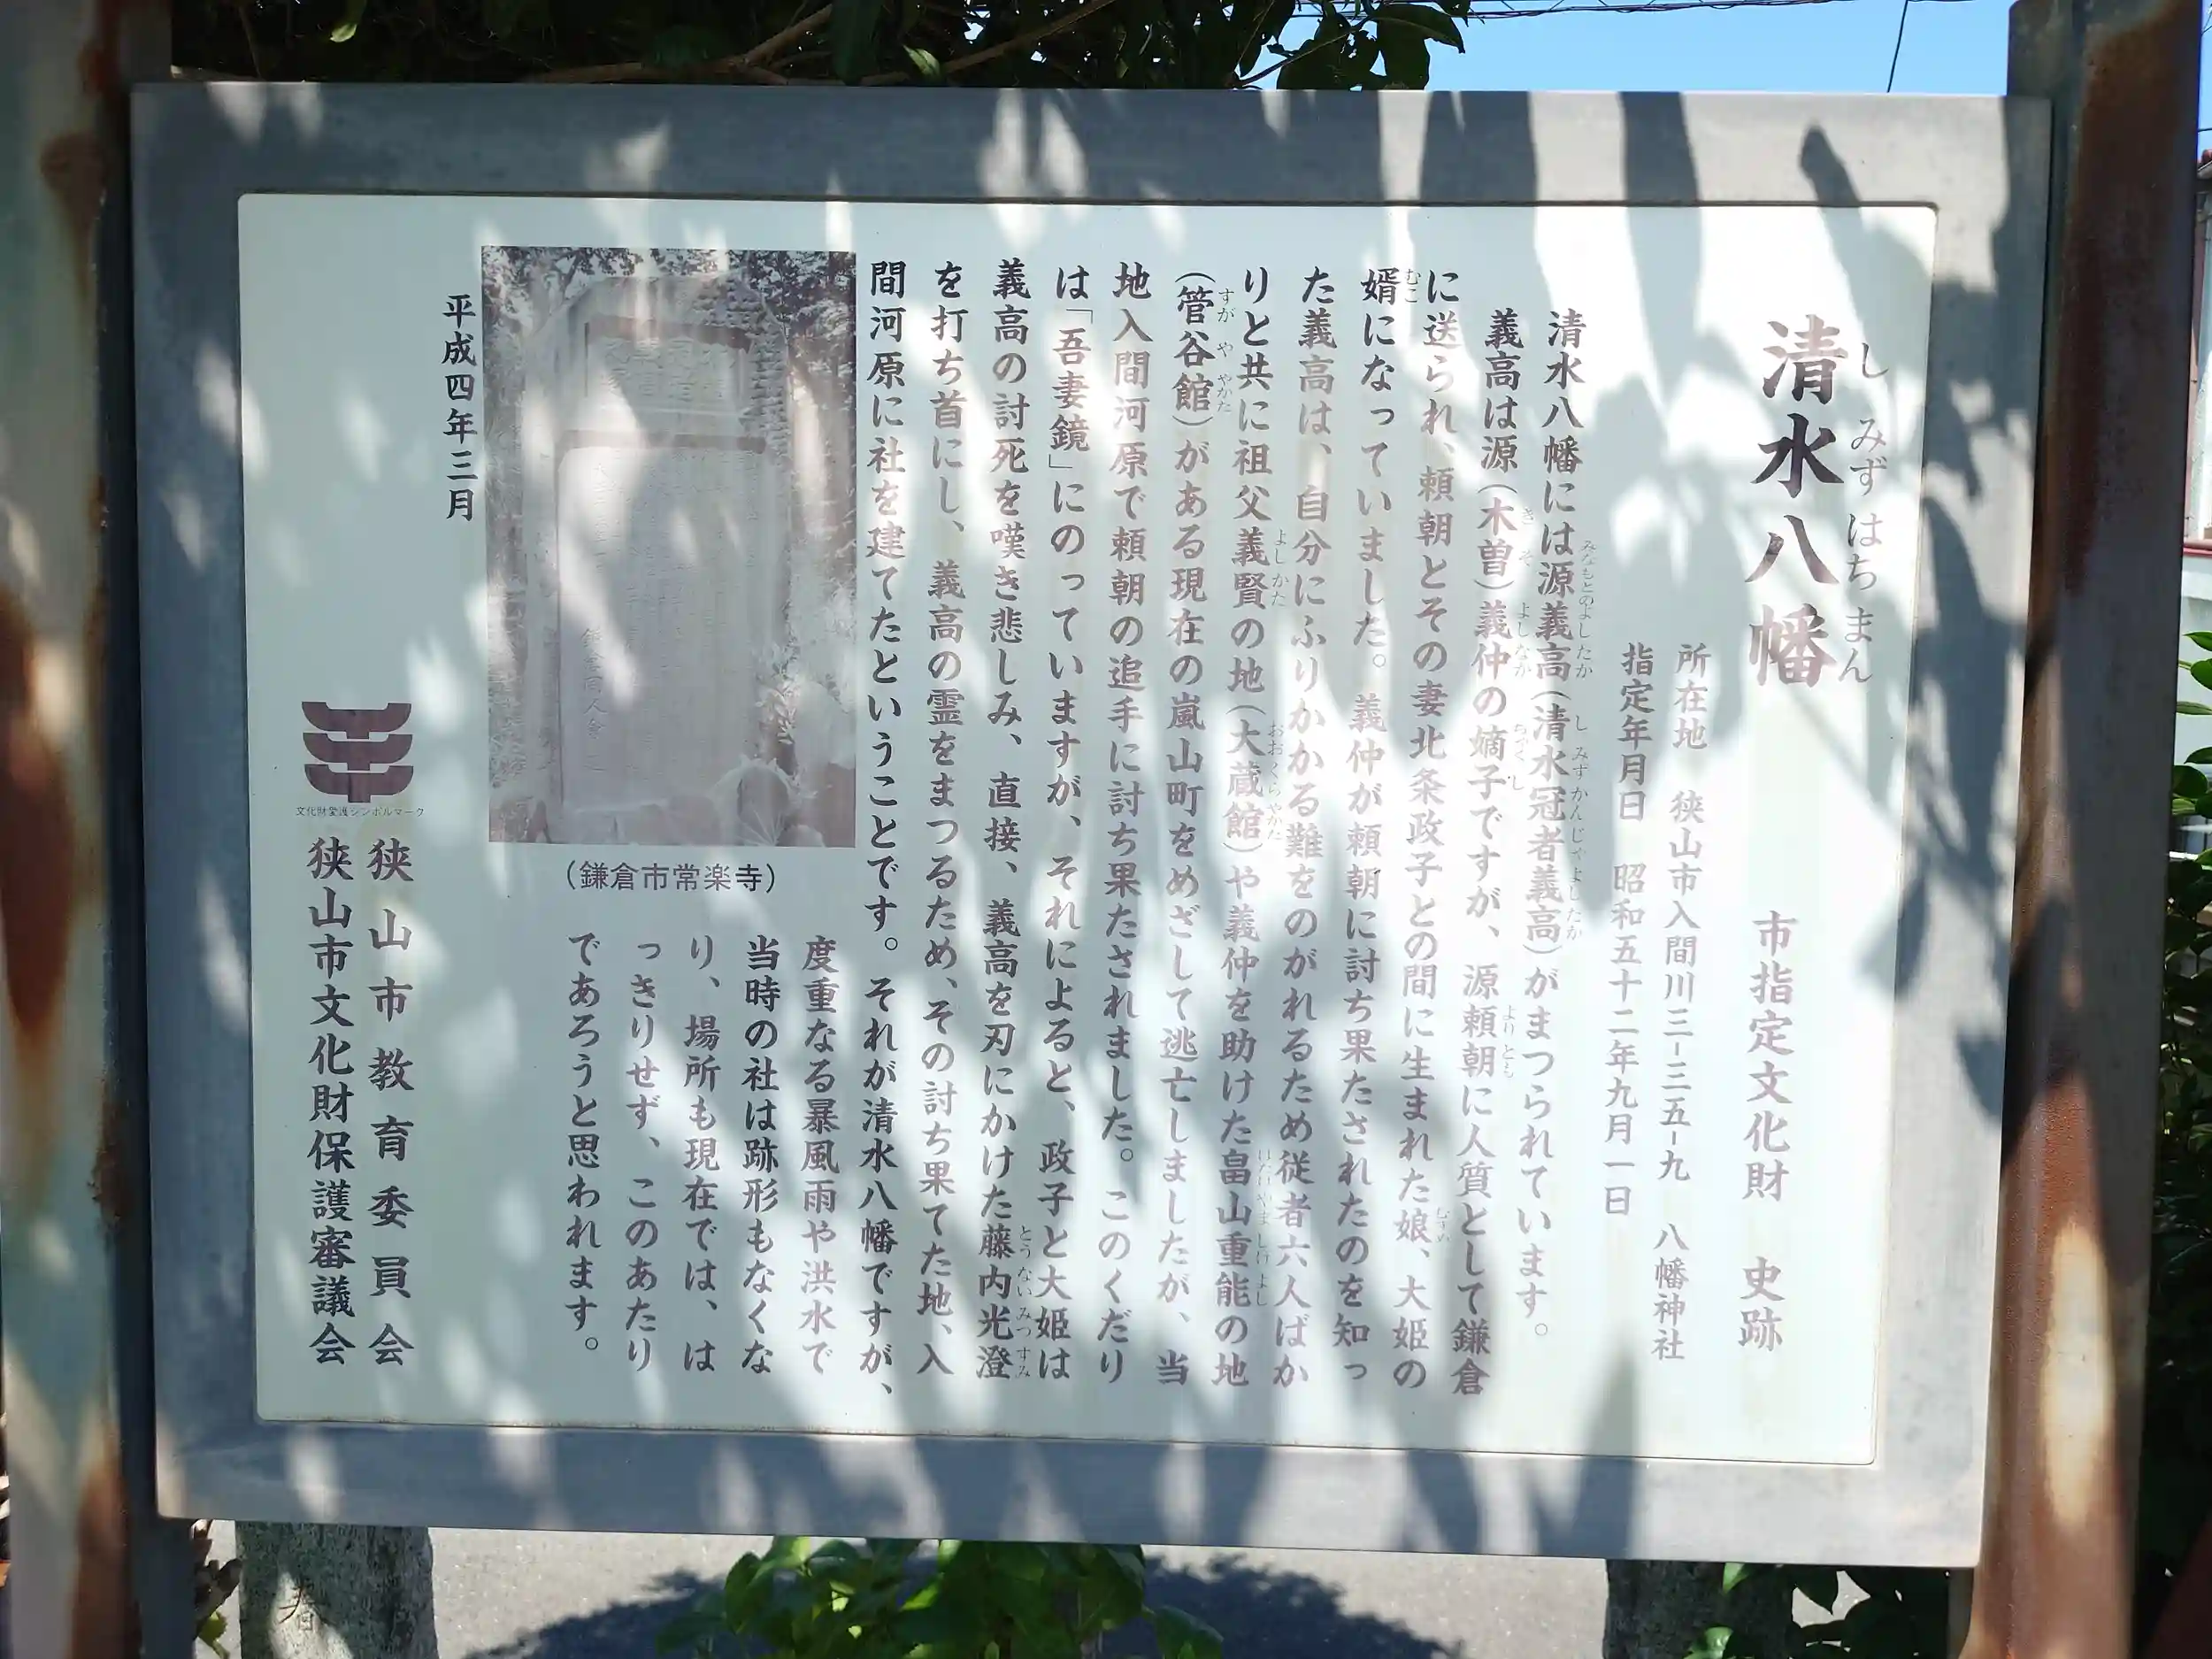 清水八幡
しみずはちまん
市指定文化財 史跡
所在地 狭山市入間川三-三五-九 八幡神社
指定年月日 昭和五十二年九月一日
清水八幡には源義高(清水冠者義高)がまつられています。
義高は源(木曽)義仲の嫡子ですが、源頼朝に人質として鎌倉
に送られ、頼朝とその妻北条政子との間に生まれた娘、大姫の
婿になっていました。義仲が頼朝に討ち果たされたのを知っ
た義高は、自分にふりかかる難をのがれるため従者六人ばか
りと共に祖父義賢の地(大蔵館)や義仲を助けた畠山重能の地
(管谷館)がある現在の嵐山町をめざして逃亡しましたが、当
地入間河原で頼朝の追手に討ち果たされました。このくだり
は「吾妻鏡」にのっていますが、それによると、政子と大姫は
義高の討死を嘆き悲しみ、直接、義高を刃にかけた藤内光澄
を打ち首にし、義高の霊をまつるため、その討ち果てた地、入
間河原に社を建てたということです。それが清水八幡ですが、
度重なる暴風雨や洪水で
当時の社は跡形もなくな
り、場所も現在では、は
っきりせず、このあたり
であろうと思われます。
(鎌倉市常楽寺)
平成四年三月
文化財愛護シンボルマーク
狭山市教育委員会
狭山市文化財保護審議会